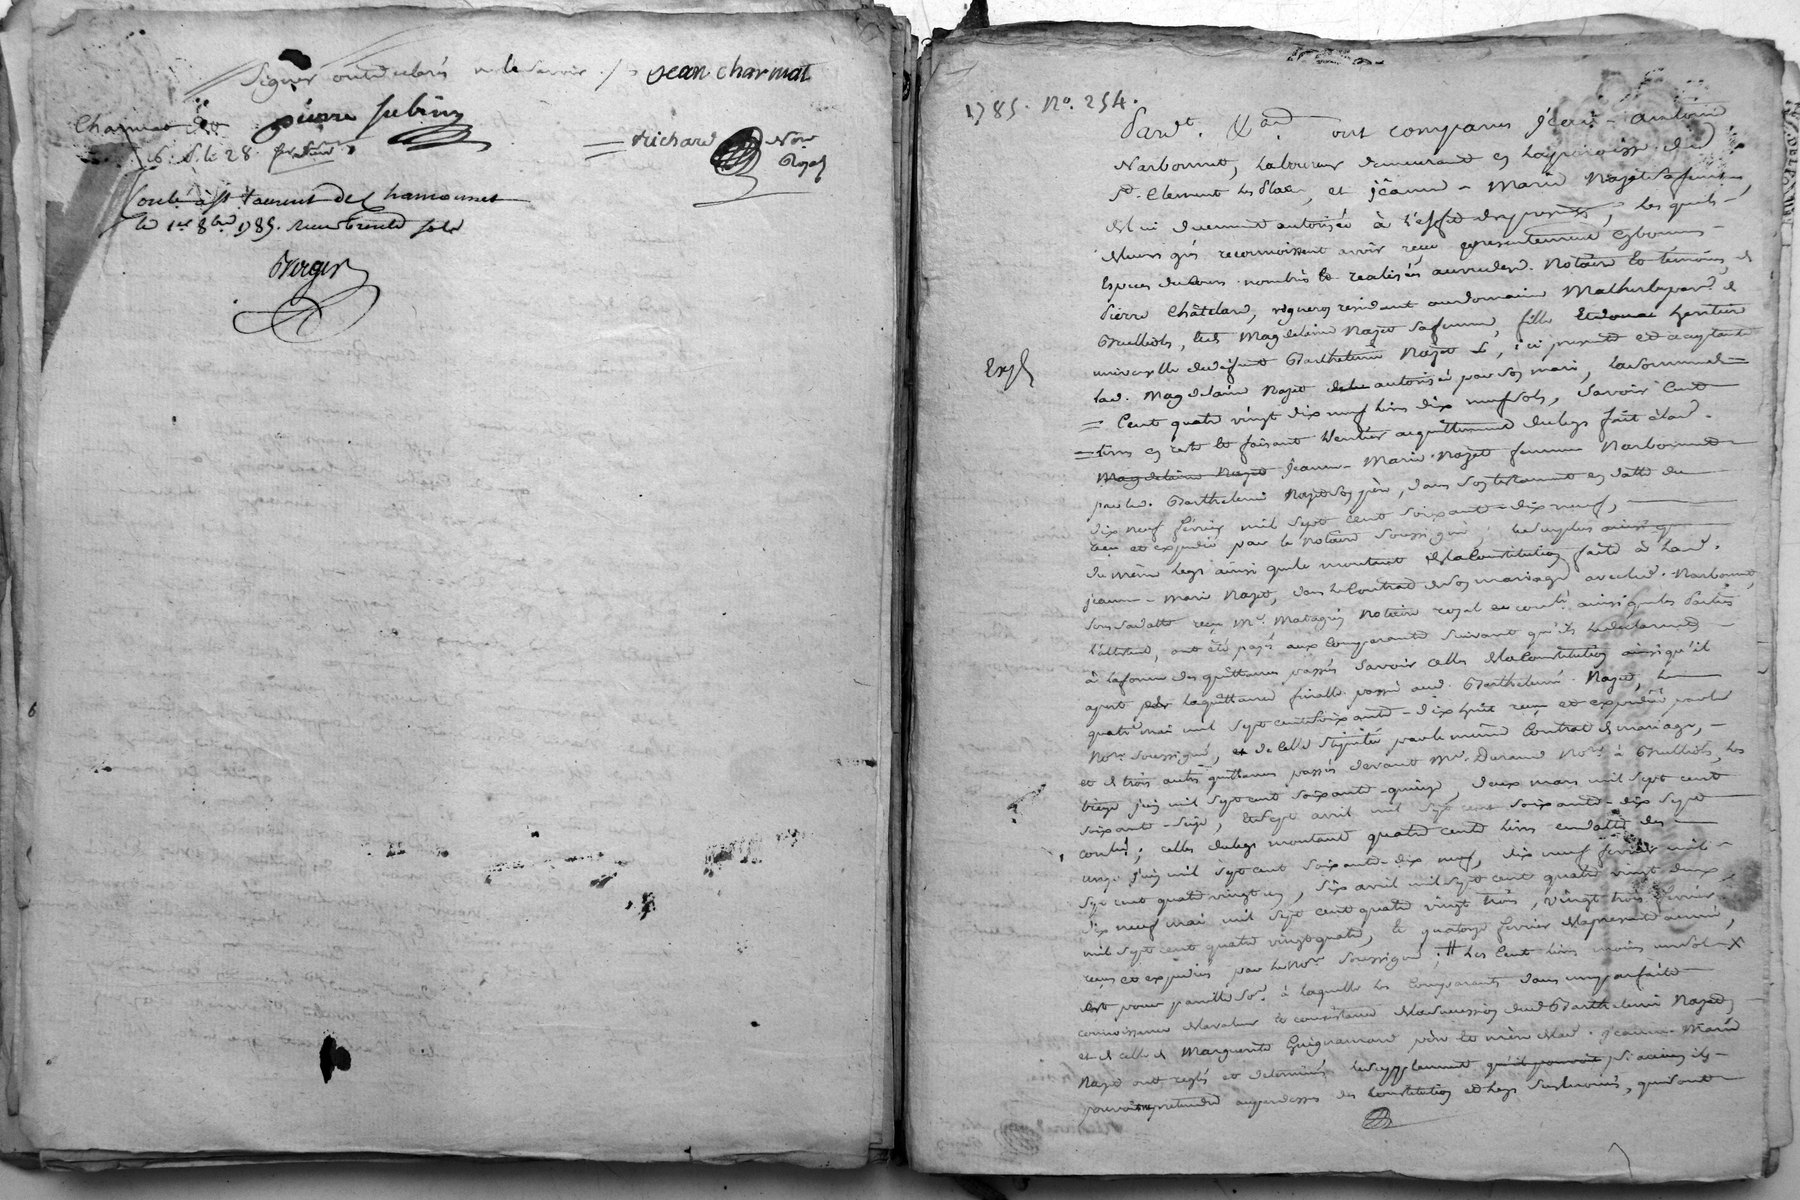 signer ont declarés ne le savoir ./. Jean charmat
Charmat
pierre jubin
Richard Nore
Royal
Le 28
Conlé à St Laurent de Chamousset
le 1er 8bre 1785. reçu trente sols
Verger
1785. No. 254.
Pardt. &ad. ont comparus jean-antoine
Narbonnet, laboureur demeurant en la paroisse de
St. Clement les Places, et jeanne-Marie Nazet sa femme,
de lui duement autorisée à l'effet des presentes, les quels
de leurs grés reconnoissent avoir reçu presentement en bonnes
Especes du cours nombrés et realisés au vu desd. Notaire et témoins, de
pierre Châtelard, vigneron residant au domaine Malherbe parse. de
Brullioles, et de Magdelaine Nazet sa femme, fille et donae heritiere
universelle de defunt Barthelemi Nazet, ici presents et acceptants
lad. Magdelaine Nazet de lui autorisée par son mari, la somme de
Exp
Cent quatre vingt dix neuf livres dix neuf sols, savoir Cent
livres en reste et faisant l'entier acquittement du legs fait à lad.
Magdelaine Nazet jeanne-Marie Nazet femme Narbonnet
par led. Barthelemi Nazet son père, dans son testament en datte du
dix neuf février mil sept cent soixante-dix neuf,
reçu et expedié par le Notaire soussigné, le surplus ainsi q
du même legs ainsi que le montant de la Constitution faite à lad.
jeanne-Marie Nazet, dans le Contrat de son mariage avec led. Narbonnet,
sous sa datte reçu Me. Matagrin Notaire royal et conlé. ainsi que les Parties
l'attestent, ont été payés aux Comparants suivant qu'ils le declarent
à la forme des quittances passées savoir celles de la Constitution ainsi qu'il
apert par la quittance finalle passée aud. Barthelemi Nazet, le
quatre mai mil sept cent soixante-dix huit reçue et expediée par le
Nore. soussigné, et de celle stipulée par le même Contrat de mariage,
et de trois autres quittances passées devant Me. Durand Nore. à Brullioles, les
treize juin mil sept cent soixante-quinze, deux mars mil sept cent
soixante-seize, et sept avril mil sept cent soixante-dix sept
conlés; celles du legs montant quatre cents livres en datte des
onze juin mil sept cent soixante-dix neuf, dix neuf février mil
sept cent quatre vingt un, six avril mil sept cent quatre vingt deux,
dix neuf mai mil sept cent quatre vingt trois, vingt trois février
mil sept cent quatre vingt quatre, et quatorze fevrier de la presente année,
reçues et expediées par le Nore. soussigné; # Les Cent livres moins un sol X
est pour pareille some. à laquelle les Comparants dans une parfaite
connoissance de la valeur et consistance de la succession dud. Barthelemi Nazet
et de celle de Marguerite Guignamard père et mère de lad. jeanne-Marie
Nazet ont reglé et determiné le supplement qu'il pouvoit si aucun ils
pouvoient pretendre au par dessus des Constitution et legs susenoncés, qui sont